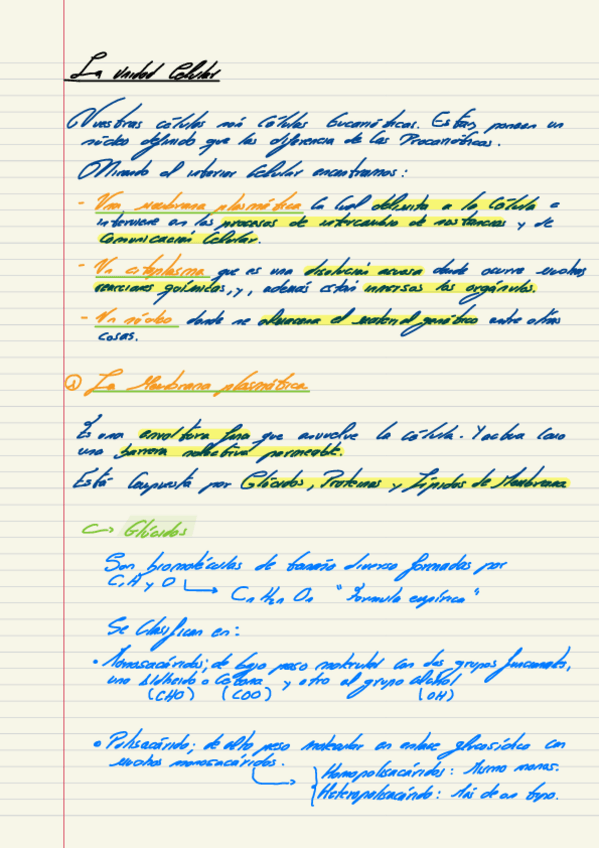 La unidad Celular
Nuestras células son células Eucarióticas. Estas, poseen un
núcleo definido que las diferencia de las Procarióticas.
Mirando al interior Celular encontramos:
- Una membrana plasmática la cual delimita a la Célula e
interviene en los procesos de intercambio de sustancias y de
Comunicación Celular.
- Un citoplasma que es una disolución acuosa donde ocurre muchas
reacciones químicas, y, además están inmersos los orgánulos.
- Un núcleo donde se almacena el material genético entre otras
cosas.
① La Membrana plasmática
Es una envoltura fina que envuelve la célula. Y actua como
una barrera selectiva permeable.
Está Compuesta por Glúcidos, Proteínas y Lípidos de Membrana
↪ Glúcidos
Son biomoléculas de tamaño diverso formadas por
C, H y O ↪ Cn H2n On "Formula empírica"
Se Clasifican en:
• Monosacáridos; de bajo peso molecular con dos grupos funcionales,
uno Aldheido o Cetona y otro el grupo alcohol
(CHO) (COO) (OH)
• Polisacárido; de alto peso molecular en enlace glucosídico con
muchos monosacáridos.
Homopolisacáridos: Mismo monos.
Heteropolisacárido: Más de un tipo.